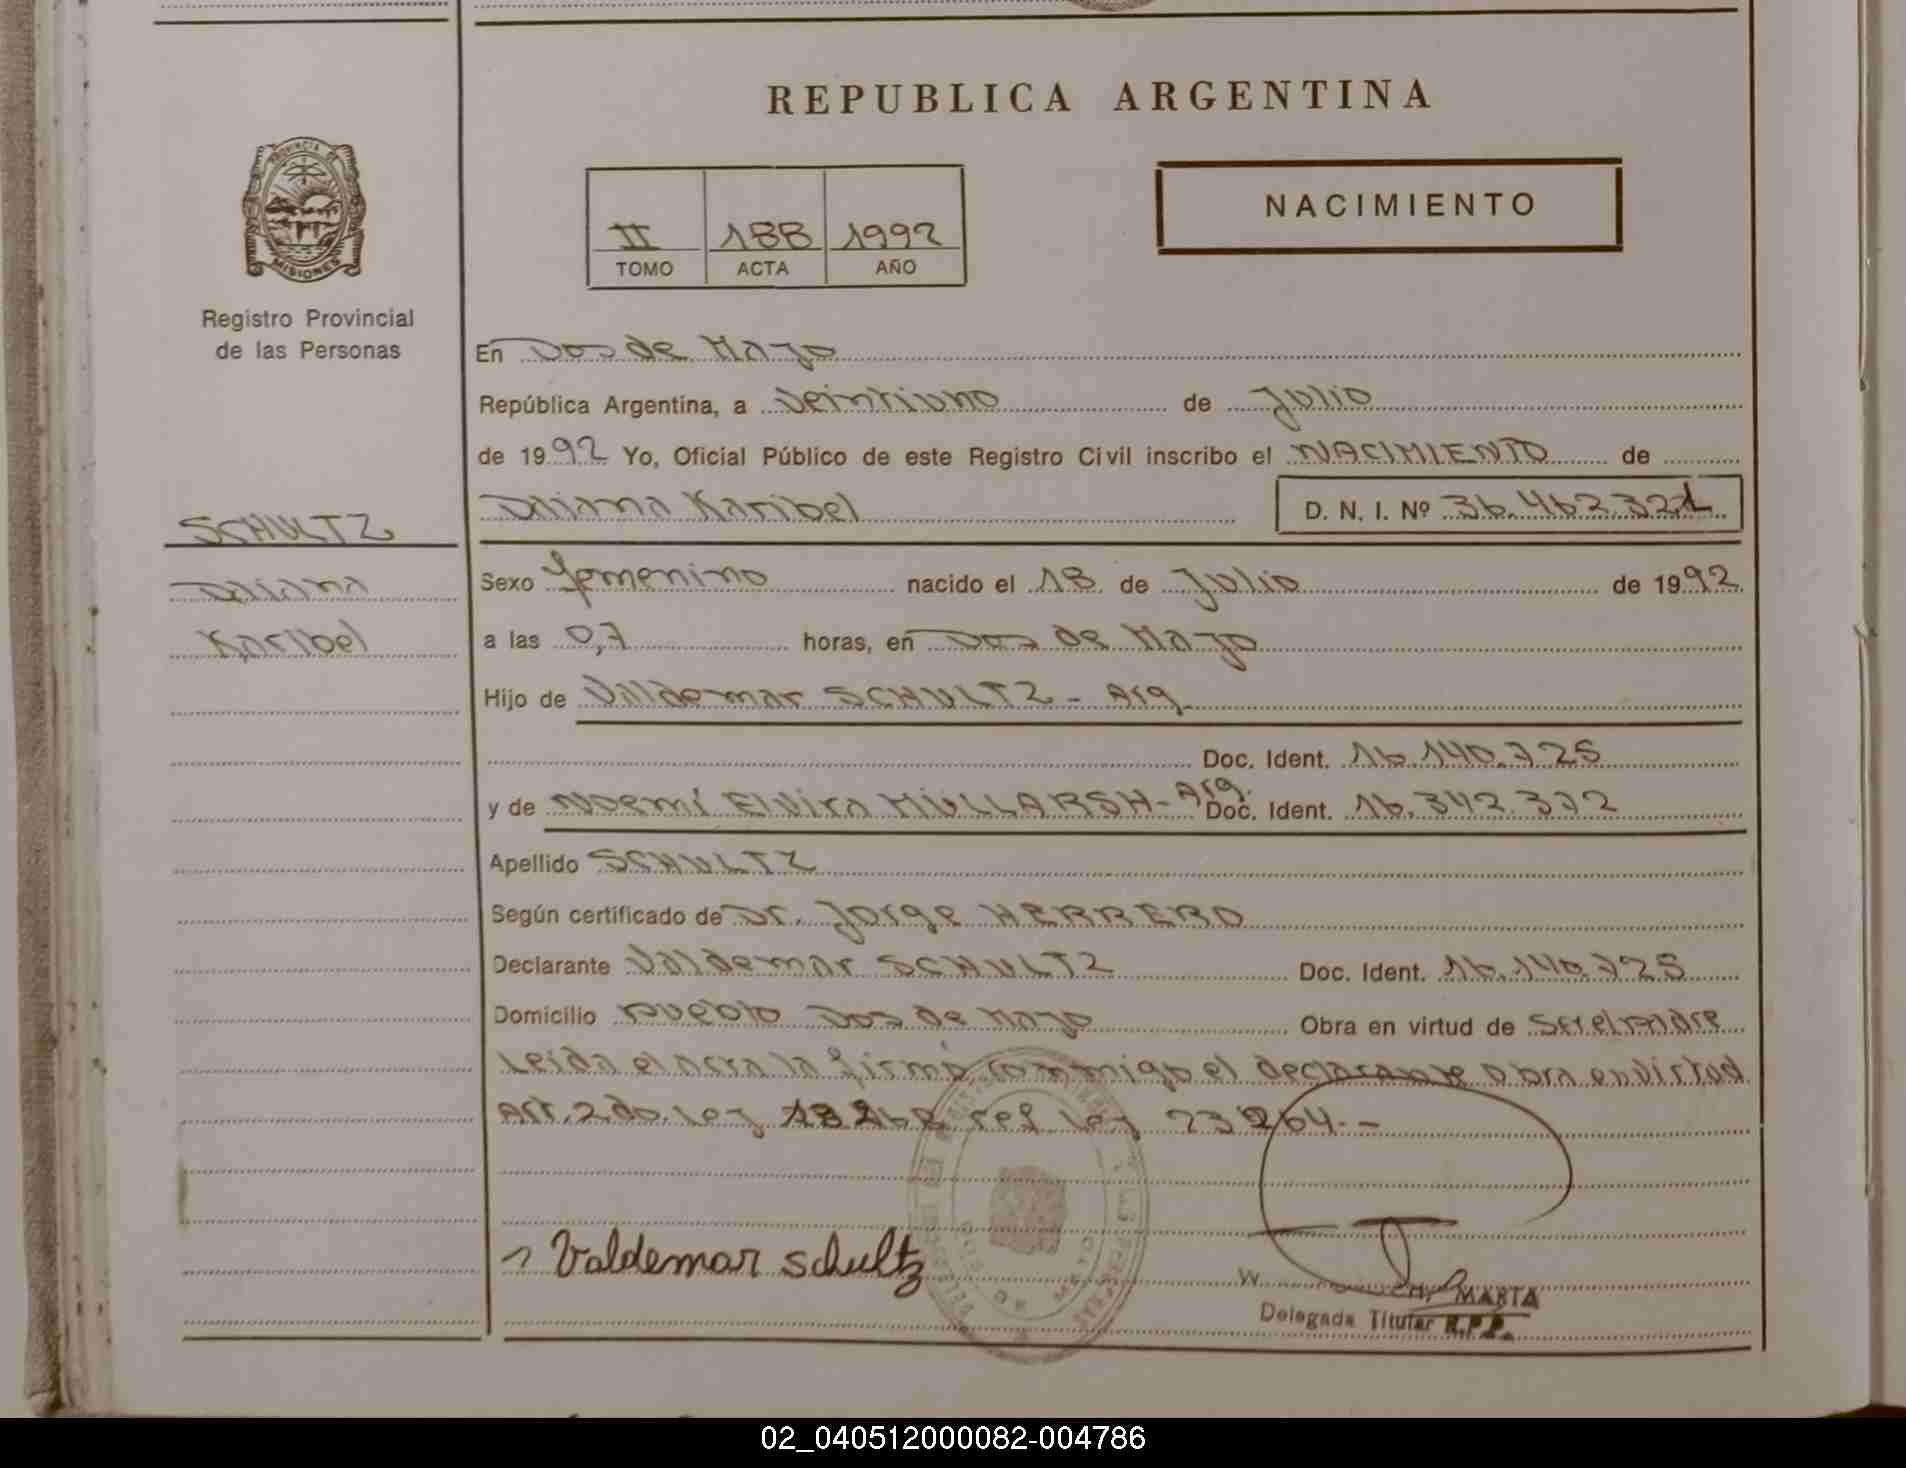 REPUBLICA ARGENTINA
PROVINCIA DE
MISIONES
Registro Provincial
de las Personas
II 188 1992
TOMO ACTA AÑO
NACIMIENTO
En Dos de Mayo
República Argentina, a veintiuno de Julio
de 1992 Yo, Oficial Público de este Registro Civil inscribo el NACIMIENTO de
Daiana Karibel D. N. I. Nº 36.462.321
SCHULTZ
Daiana
Karibel
Sexo femenino nacido el 18 de Julio de 1992
a las 0,7 horas, en Dos de Mayo
Hijo de Valdemar SCHULTZ - Arg
Doc. Ident. 16.140.725
y de Noemí Elvira MÜLLARSH - Arg. Doc. Ident. 16.342.372
Apellido SCHULTZ
Según certificado de Dr. Jorge HERRERO
Declarante Valdemar SCHULTZ Doc. Ident. 16.140.725
Domicilio Pueblo Dos de Mayo Obra en virtud de Ser el padre
Leida el acta la firmó conmigo el declarante Obra en virtud
Art. 2do. Ley 18248 ref Ley 23264.-
Valdemar schultz
MARTA
Delegada Titular R.P.P.
02_040512000082-004786